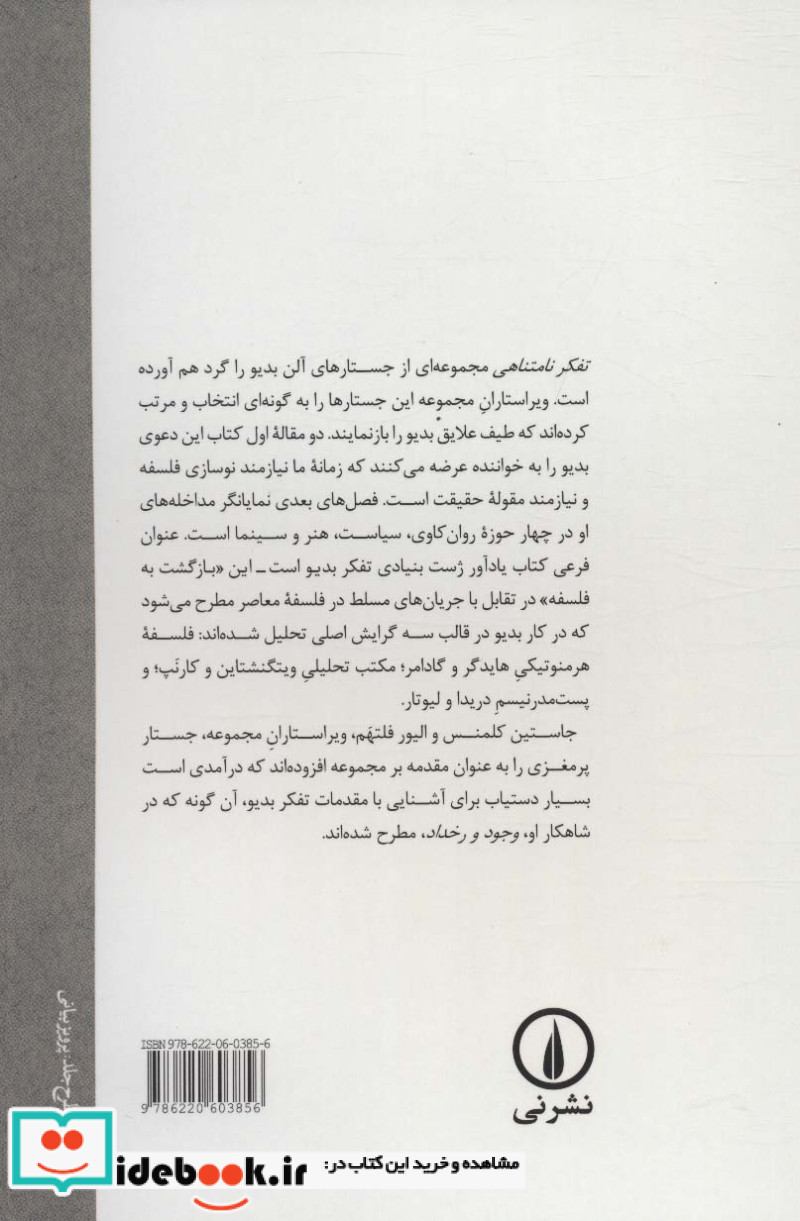 تفکر نامتناهی مجموعه‌ای از جستارهای آلن بدیو را گرد هم آورده
است. ویراستارانِ مجموعه این جستارها را به گونه‌ای انتخاب و مرتب
کرده‌اند که طیف علایقِ بدیو را بازنمایند. دو مقالهٔ اول کتاب این دعوی
بدیو را به خواننده عرضه می‌کنند که زمانهٔ ما نیازمند نوسازی فلسفه
و نیازمند مقولهٔ حقیقت است. فصل‌های بعدی نمایانگر مداخله‌های
او در چهار حوزهٔ روان‌کاوی، سیاست، هنر و سینما است. عنوان
فرعی کتاب یادآور ژست بنیادی تفکر بدیو است ـ این «بازگشت به
فلسفه» در تقابل با جریان‌های مسلط در فلسفهٔ معاصر مطرح می‌شود
که در کار بدیو در قالب سه گرایش اصلی تحلیل شده‌اند: فلسفهٔ
هرمنوتیکیِ هایدگر و گادامر؛ مکتب تحلیلیِ ویتگنشتاین و کارنَپ؛ و
پست‌مدرنیسمِ دریدا و لیوتار.
جاستین کلمنس و الیور فلتهَم، ویراستارانِ مجموعه، جستار
پرمغزی را به عنوان مقدمه بر مجموعه افزوده‌اند که درآمدی است
بسیار دستیاب برای آشنایی با مقدمات تفکر بدیو، آن گونه که در
شاهکار او، وجود و رخداد، مطرح شده‌اند.
طرح جلد: پرویز بیانی
ISBN 978-622-06-0385-6
9 786220 603856
نشر نی
مشاهده و خرید این کتاب در:
idebook.ir